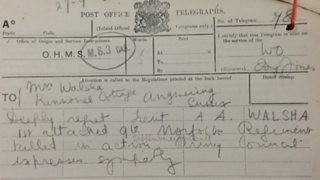 POST OFFICE TELEGRAPHS.
A°
Office of Origin and Service Instructions.
O.H.M.S. M.S.3
(Telegrams only)
No. of Telegram 48
I certify that this Telegram is sent on the service of the
WO
At
To
By
Attention is called to the Regulations printed at the back hereof
TO Mrs Walsha
Kinnonel Cottage Angmering
Sussex
Deeply regret Lieut A. A. WALSHA
1st attached 9th Norfolk Regiment
killed in action Army Council
expresses sympathy